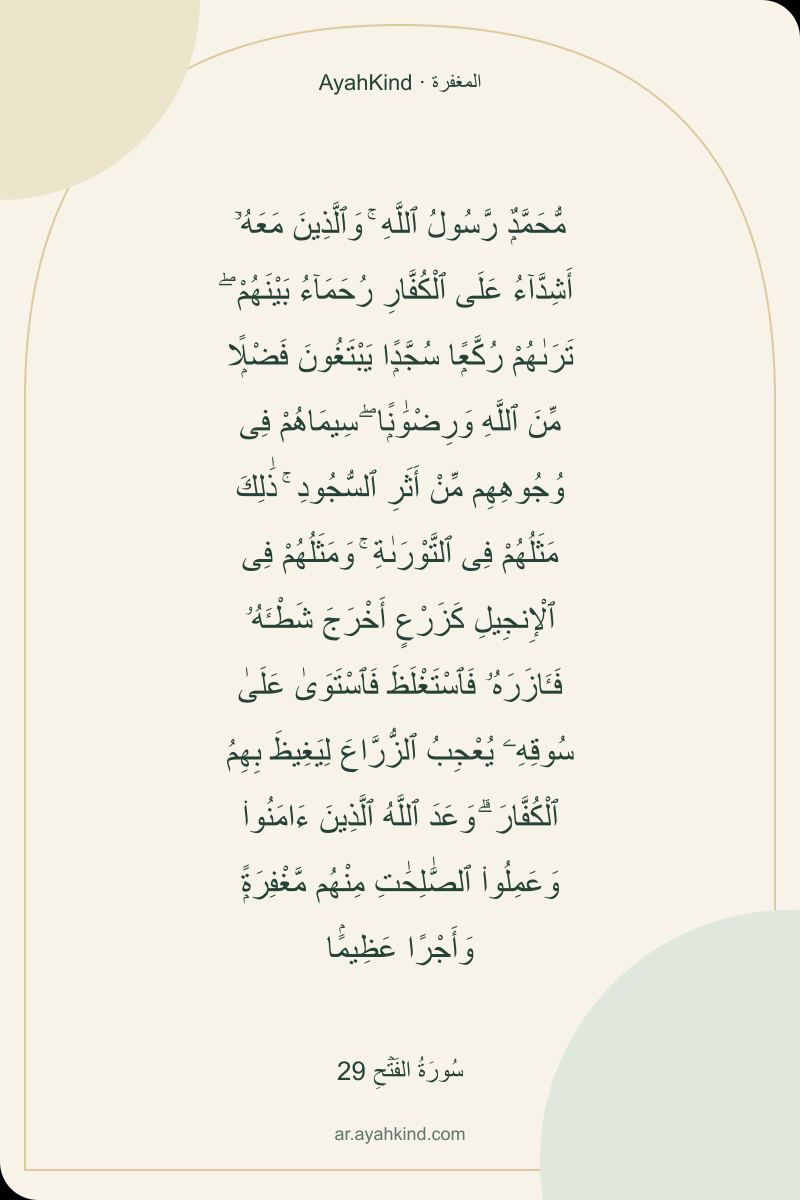 AyahKind · المغفرة
مُّحَمَّدٌۭ رَّسُولُ ٱللَّهِ ۚ وَٱلَّذِينَ مَعَهُۥٓ
أَشِدَّآءُ عَلَى ٱلْكُفَّارِ رُحَمَآءُ بَيْنَهُمْ ۖ
تَرَىٰهُمْ رُكَّعًۭا سُجَّدًۭا يَبْتَغُونَ فَضْلًۭا
مِّنَ ٱللَّهِ وَرِضْوَٰنًۭا ۖ سِيمَاهُمْ فِى
وُجُوهِهِم مِّنْ أَثَرِ ٱلسُّجُودِ ۚ ذَٰلِكَ
مَثَلُهُمْ فِى ٱلتَّوْرَىٰةِ ۚ وَمَثَلُهُمْ فِى
ٱلْإِنجِيلِ كَزَرْعٍ أَخْرَجَ شَطْـَٔهُۥ
فَـَٔازَرَهُۥ فَٱسْتَغْلَظَ فَٱسْتَوَىٰ عَلَىٰ
سُوقِهِۦ يُعْجِبُ ٱلزُّرَّاعَ لِيَغِيظَ بِهِمُ
ٱلْكُفَّارَ ۗ وَعَدَ ٱللَّهُ ٱلَّذِينَ ءَامَنُوا۟
وَعَمِلُوا۟ ٱلصَّٰلِحَٰتِ مِنْهُم مَّغْفِرَةًۭ
وَأَجْرًا عَظِيمًۢا
سُورَةُ الفَتۡحِ 29
ar.ayahkind.com